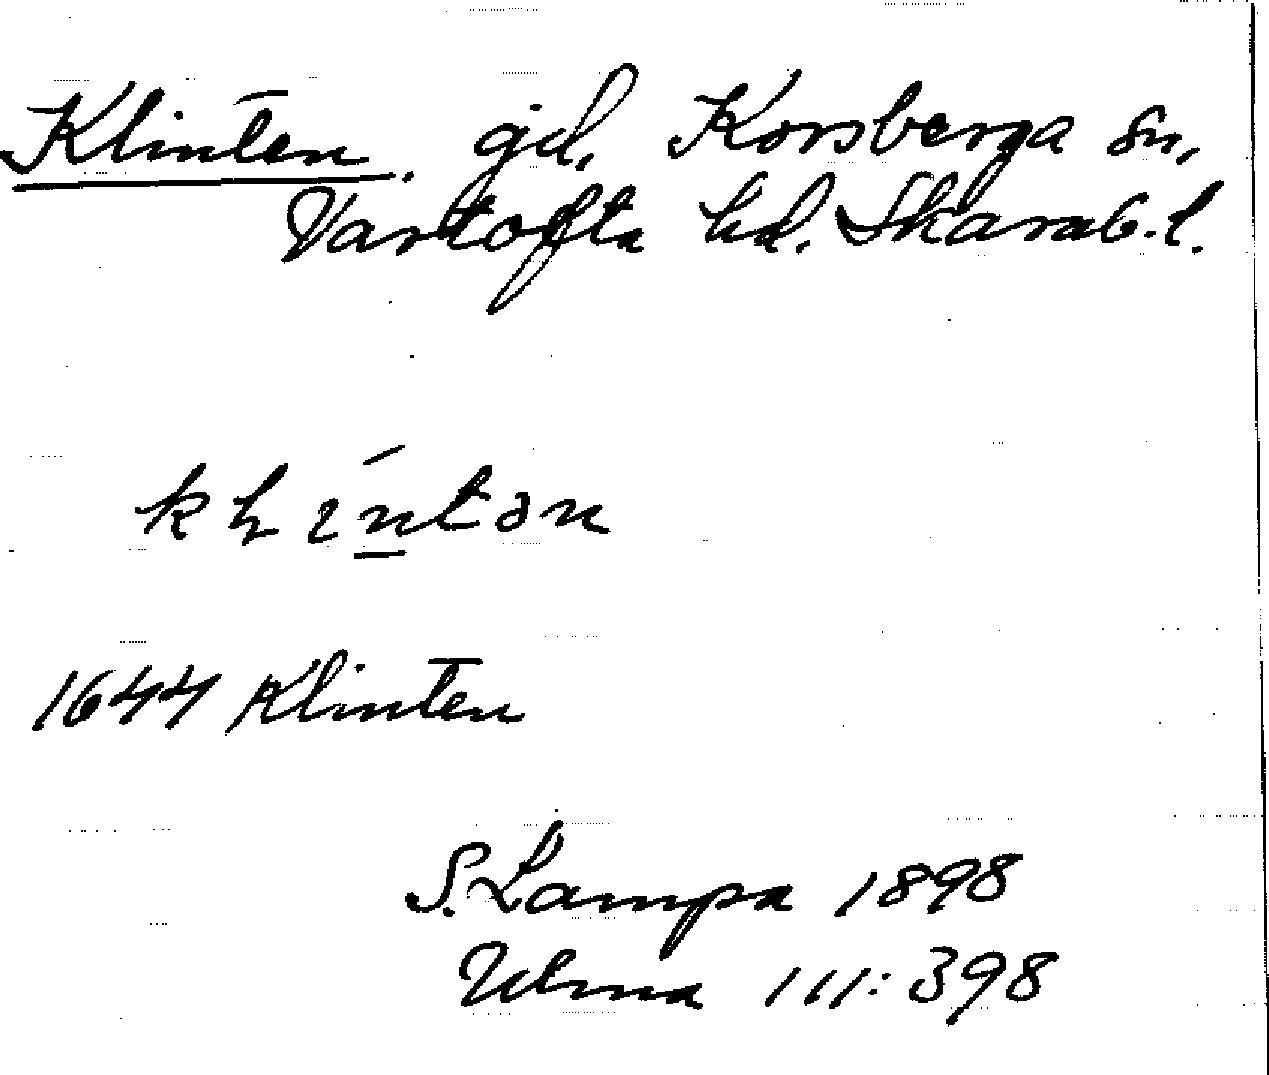 Klinten. gd. Korsberga sn,
Vartofta hd. Skarab. l.
kḷińtən
1644 Klinten
S. Lampa 1898
Ulma 111:398